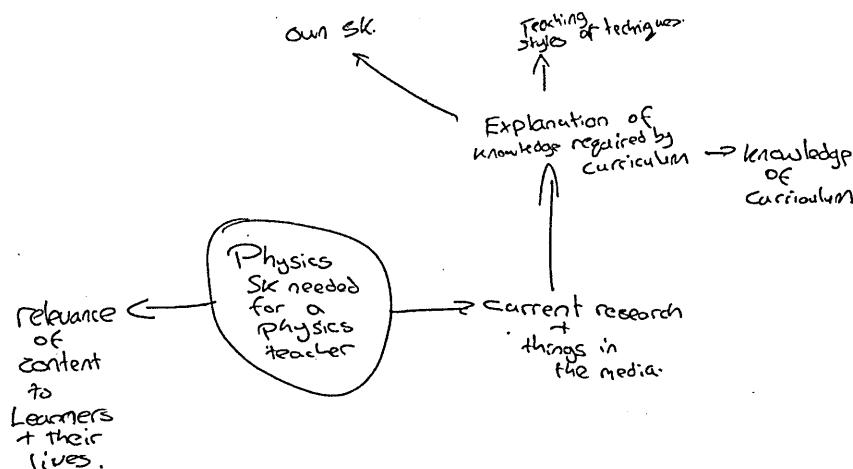 own SK.
Teaching
styles of techniques.
Explanation of
knowledge required by
curriculum
knowledge
of
curriculum
Physics
SK needed
for a
physics
teacher
relevance
of
content
to
Learners
+ their
lives.
current research
+
things in
the media.